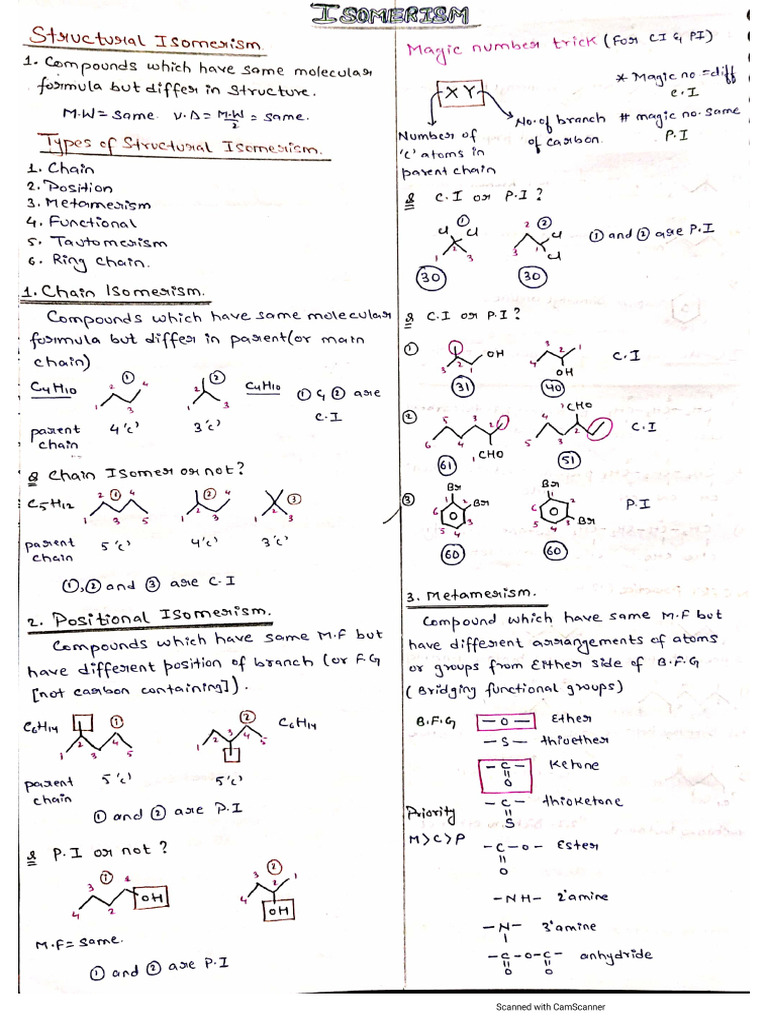 ISOMERISM
Structural Isomerism
1. Compounds which have same molecular
formula but differ in structure.
M.W = same. V.D = M.W/2 = same.
Types of Structural Isomerism.
1. Chain
2. Position
3. Metamerism
4. Functional
5. Tautomerism
6. Ring Chain.
1. Chain Isomerism.
Compounds which have same molecular
formula but differ in parent(or main
chain)
C4H10 1 2 3 4 ① 1 2 3 ② C4H10 ① & ② are
C.I
parent
chain 4'c' 3'c'
Q Chain Isomer or not?
C5H12 1 2 3 4 5 ① 1 2 3 4 ② 1 2 3 ③
parent
chain 5'c' 4'c' 3'c'
①,② and ③ are C.I
2. Positional Isomerism.
Compounds which have same M.F but
have different position of branch (or F.G
[not carbon containing]).
C6H14 1 2 3 4 5 ① 1 2 3 4 5 ② C6H14
parent
chain 5'c' 5'c'
① and ② are P.I
Q P.I or not?
4 3 2 1 ① OH 4 3 2 1 ② OH
M.F = same.
① and ② are P.I
Magic number trick (For CI & PI)
XY
* Magic no = diff
C.I
No. of branch # magic no. same
of carbon. P.I
Number of
'c' atoms in
parent chain
Q C.I or P.I?
① Cl Cl 1 2 3 ② 3 2 1 Cl Cl ① and ② are P.I
30 30
Q C.I or P.I?
① 3 2 1 OH 4 3 2 1 OH C.I
31 40
② 6 5 4 3 2 1CHO 5 4 3 2 1CHO C.I
61 51
③ Br 1 2 Br 3 4 5 6 Br 1 2 3 Br 4 5 6 P.I
60 60
3. Metamerism.
Compound which have same M.F but
have different arrangements of atoms
or groups from either side of B.F.G
(Bridging functional groups)
B.F.G —O— Ether
—S— thioether
—C— Ketone
O
—C— thioketone
S
Priority
M>C>P
—C—O— Ester
O
—NH— 2°amine
—N— 3°amine
—C—O—C— anhydride
O O
Scanned with CamScanner